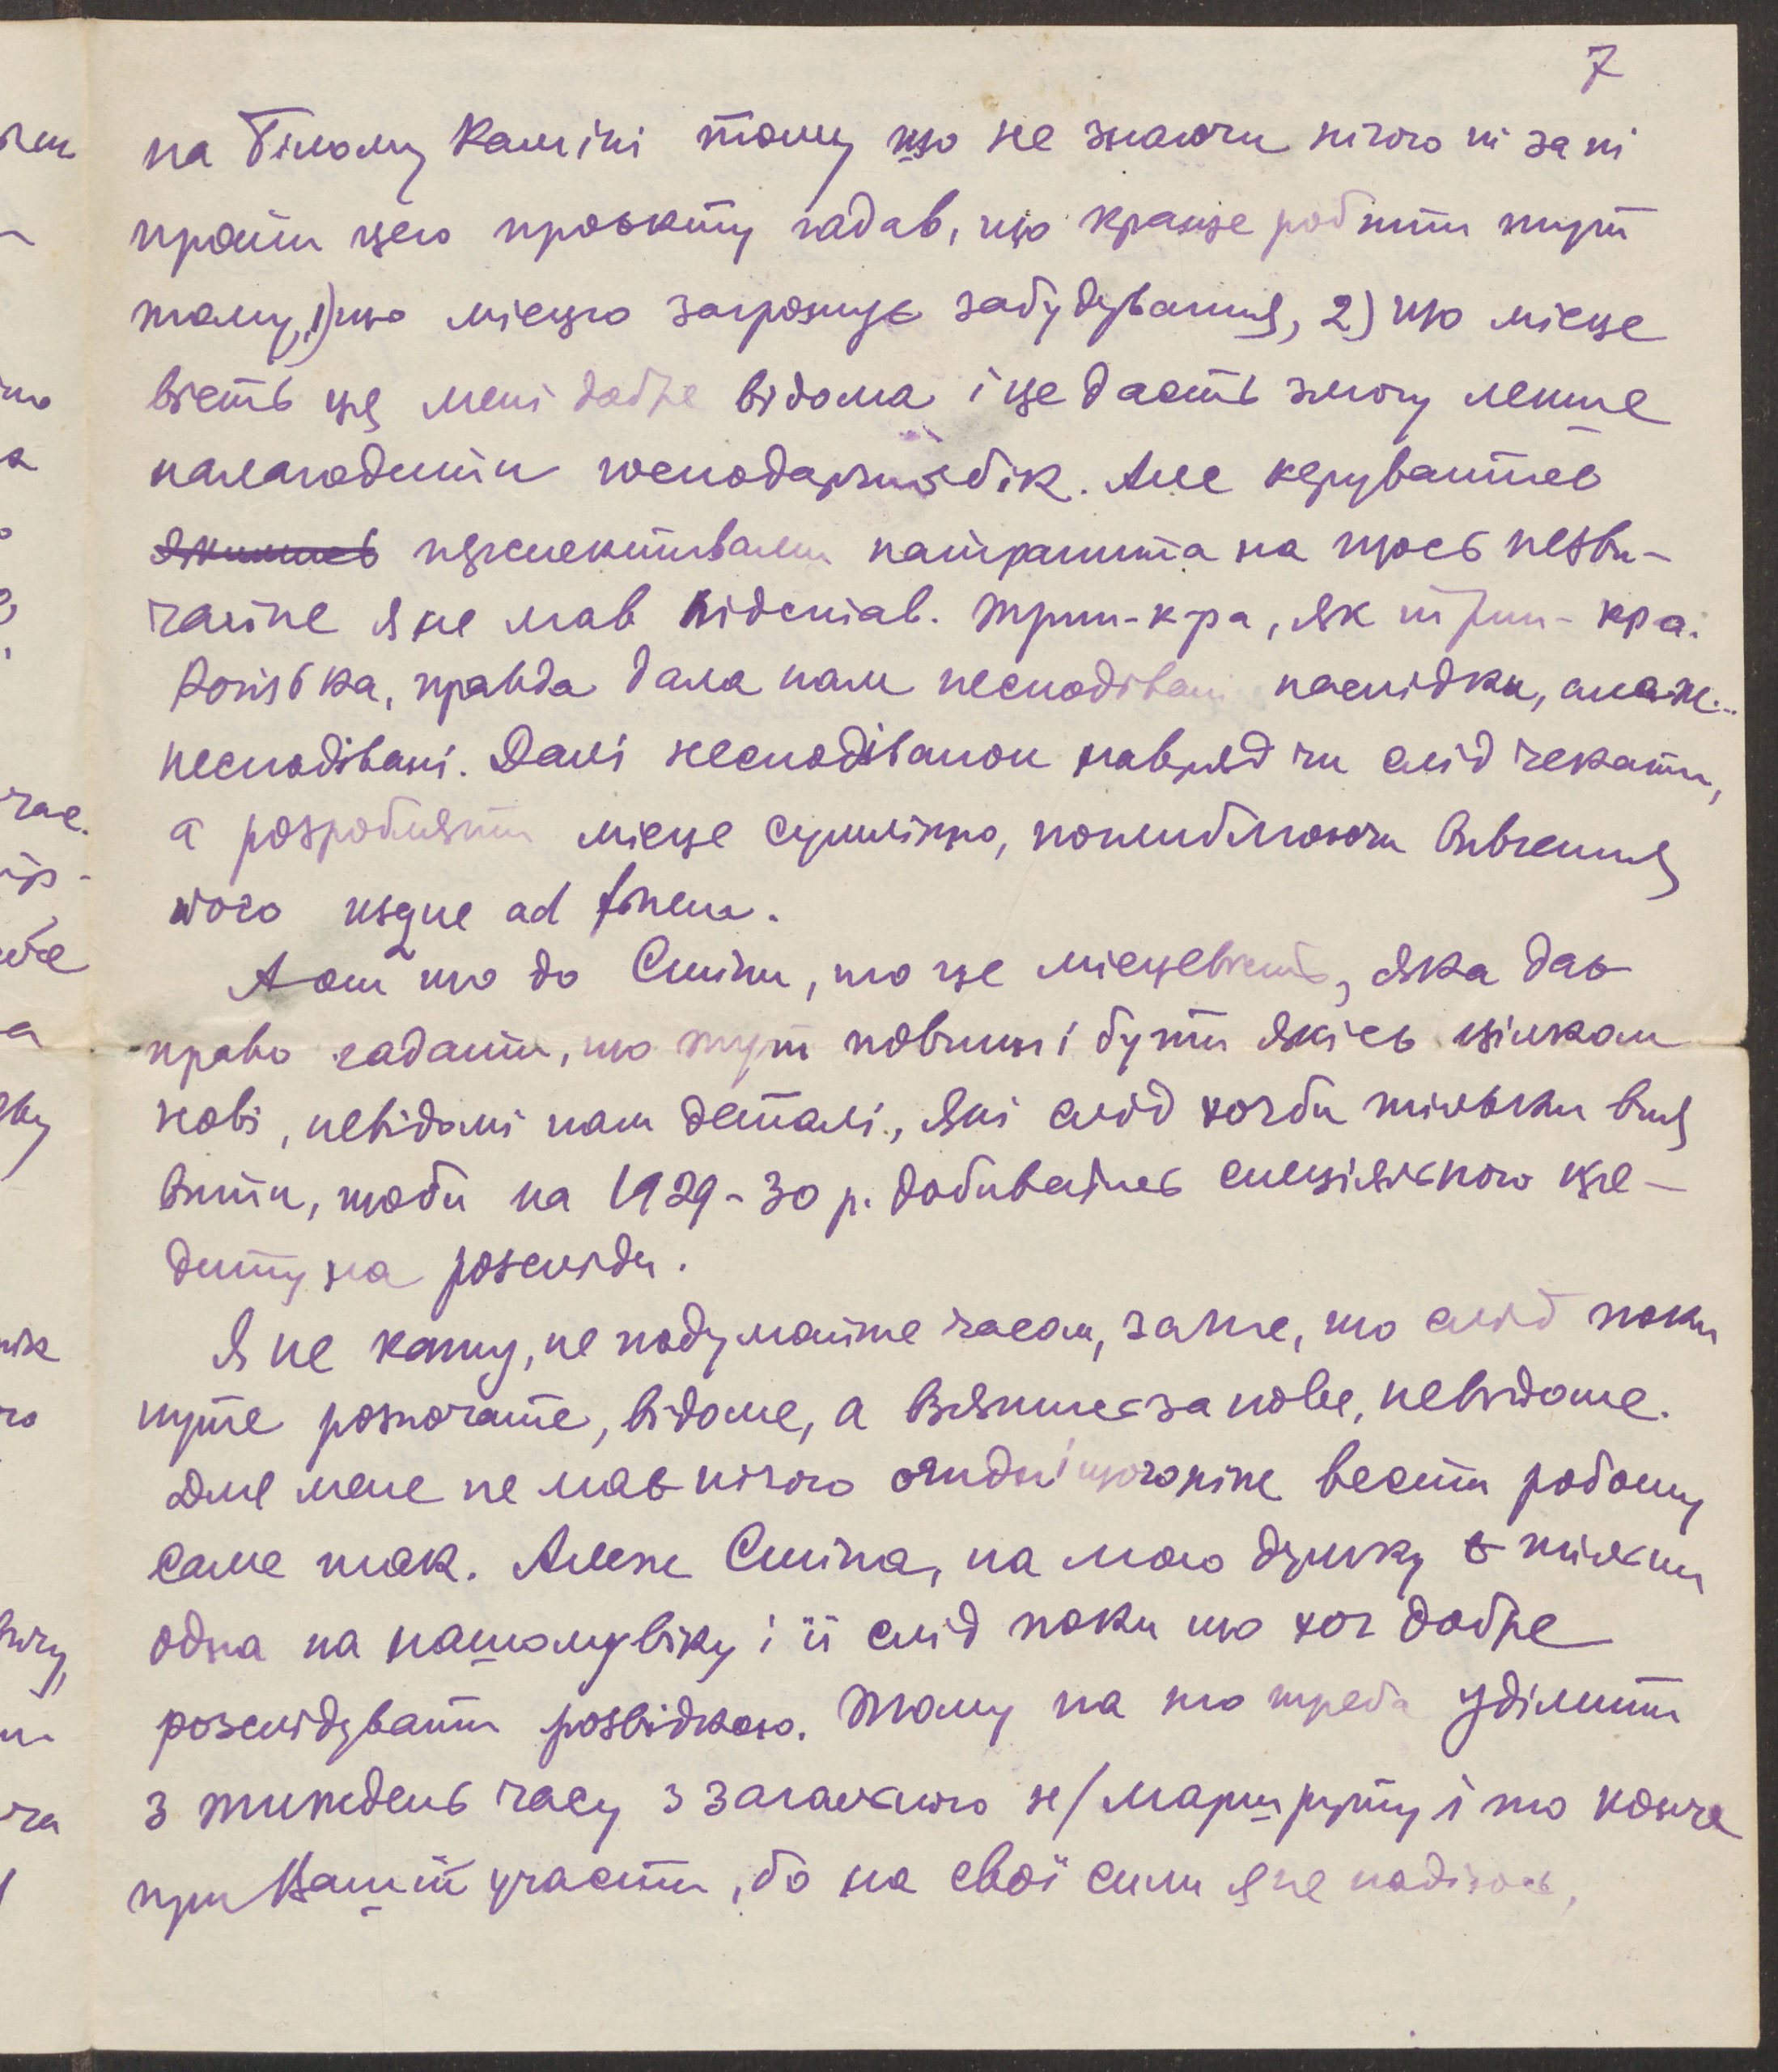 7
на Білому Камені тому що не знаючи нічого ні за ні
проти цего проєкту гадав, що краще робити тут
тому, 1) що місцю загрожує забудування, 2) що місце
вість ця мені добре відома і це дасть змогу легше
налагодити господарчий бік. Але керуватись
перспективами натрапити на щось незви-
чайне я не мав підстав. Трип-к-ра, як трип-кра.
правда дала нам несподівані наслідки, але ж...
несподівані. Далі несподіванок навряд чи слід чекати,
а розробляти місце сумлінно, поглиблюючи вивчення
його usque ad finem.
А от що до Стіни, то це місцевість, яка дає
право гадати, що тут повинні бути якісь цілком
нові, невідомі нам деталі, які слід хочби тільки вия
вити, щоби на 1929-30 р. добиватись спеціяльного кре-
диту на розсліди.
Я не кажу, не подумайте часом, за те, що слід поки
нуте розпочате, відоме, а взятись за нове, невідоме.
Для мене не має нічого огидніщого ніж вести роботу
саме так. Алеж Стіна, на мою думку є тільки
одна на нашому віку і її слід поки що хоч добре
розслідувати розвідкою. Тому на то треба уділити
з тиждень часу з загального н/маршруту і то конче
при Вашій участи, бо на свої сили я не надіюсь,